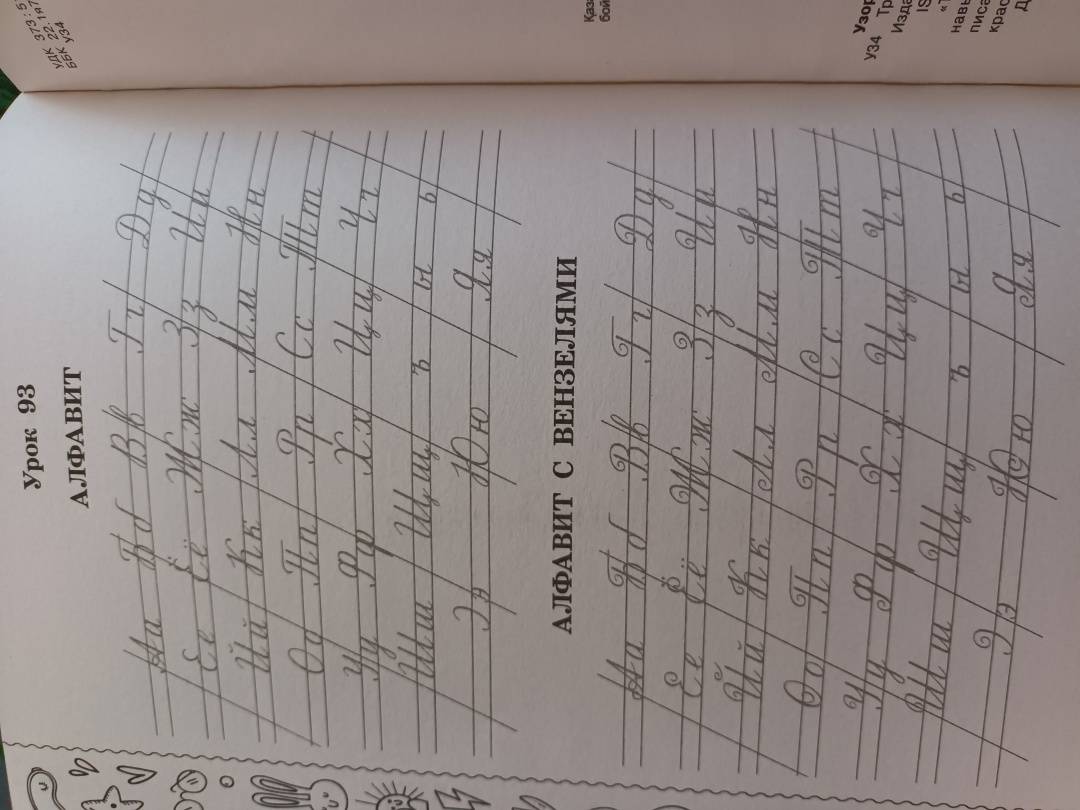 Урок 93
АЛФАВИТ
Аа Бб Вв Гг Дд
Ее Ёё Жж Зз Ии
Йй Кк Лл Мм Нн
Оо Пп Рр Сс Тт
Уу Фф Хх Цц Чч
Шш Щщ ъ ы ь
Ээ Юю Яя
АЛФАВИТ С ВЕНЗЕЛЯМИ
Аа Бб Вв Гг Дд
Ее Ёё Жж Зз Ии
Йй Кк Лл Мм Нн
Оо Пп Рр Сс Тт
Уу Фф Хх Цц Чч
Шш Щщ ъ ы ь
Ээ Юю Яя
УДК 373:5
ББК 22.1я7
У34